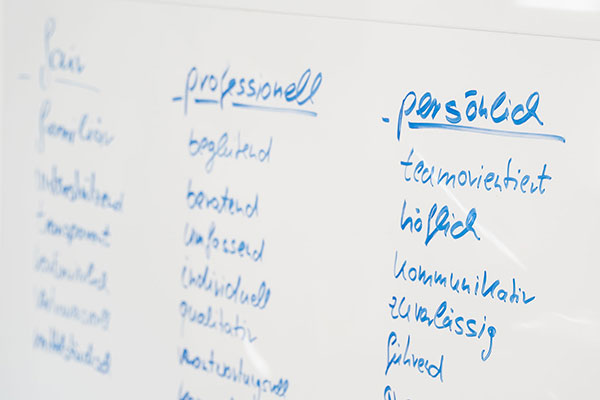 - fair
familiär
unterstützend
transparent
- professionell
begleitend
beratend
umfassend
individuell
qualitativ
verantwortungsvoll
- persönlich
teamorientiert
höflich
kommunikativ
zuverlässig
führend